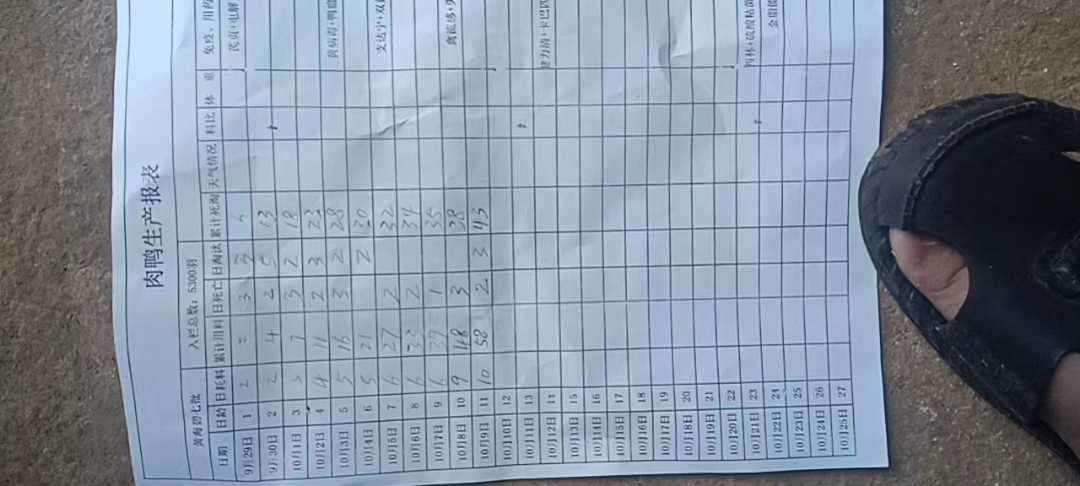 肉鸭生产报表
入栏总数：5300羽
日期 日龄 日耗料 累计用料 日死亡 日淘汰 累计死淘 天气情况 料比 体 重 免疫、用药
9月29日 1 2 2 3
9月30日 2 2 4 2 5 13
10月1日 3 3 7 3 2 18
10月2日 4 4 11 2 3 23
10月3日 5 5 16 3 2 28
10月4日 6 5 21 2 30
10月5日 7 6 27 2 32
10月6日 8 6 33 2 34
10月7日 9 6 39 1 35
10月8日 10 9 48 3 38
10月9日 11 10 58 2 3 43
10月10日 12
10月11日 13
10月12日 14
10月13日 15
10月14日 16
10月15日 17
10月16日 18
10月17日 19
10月18日 20
10月19日 21
10月20日 22
10月21日 23
10月22日 24
10月23日 25
10月24日 26
10月25日 27